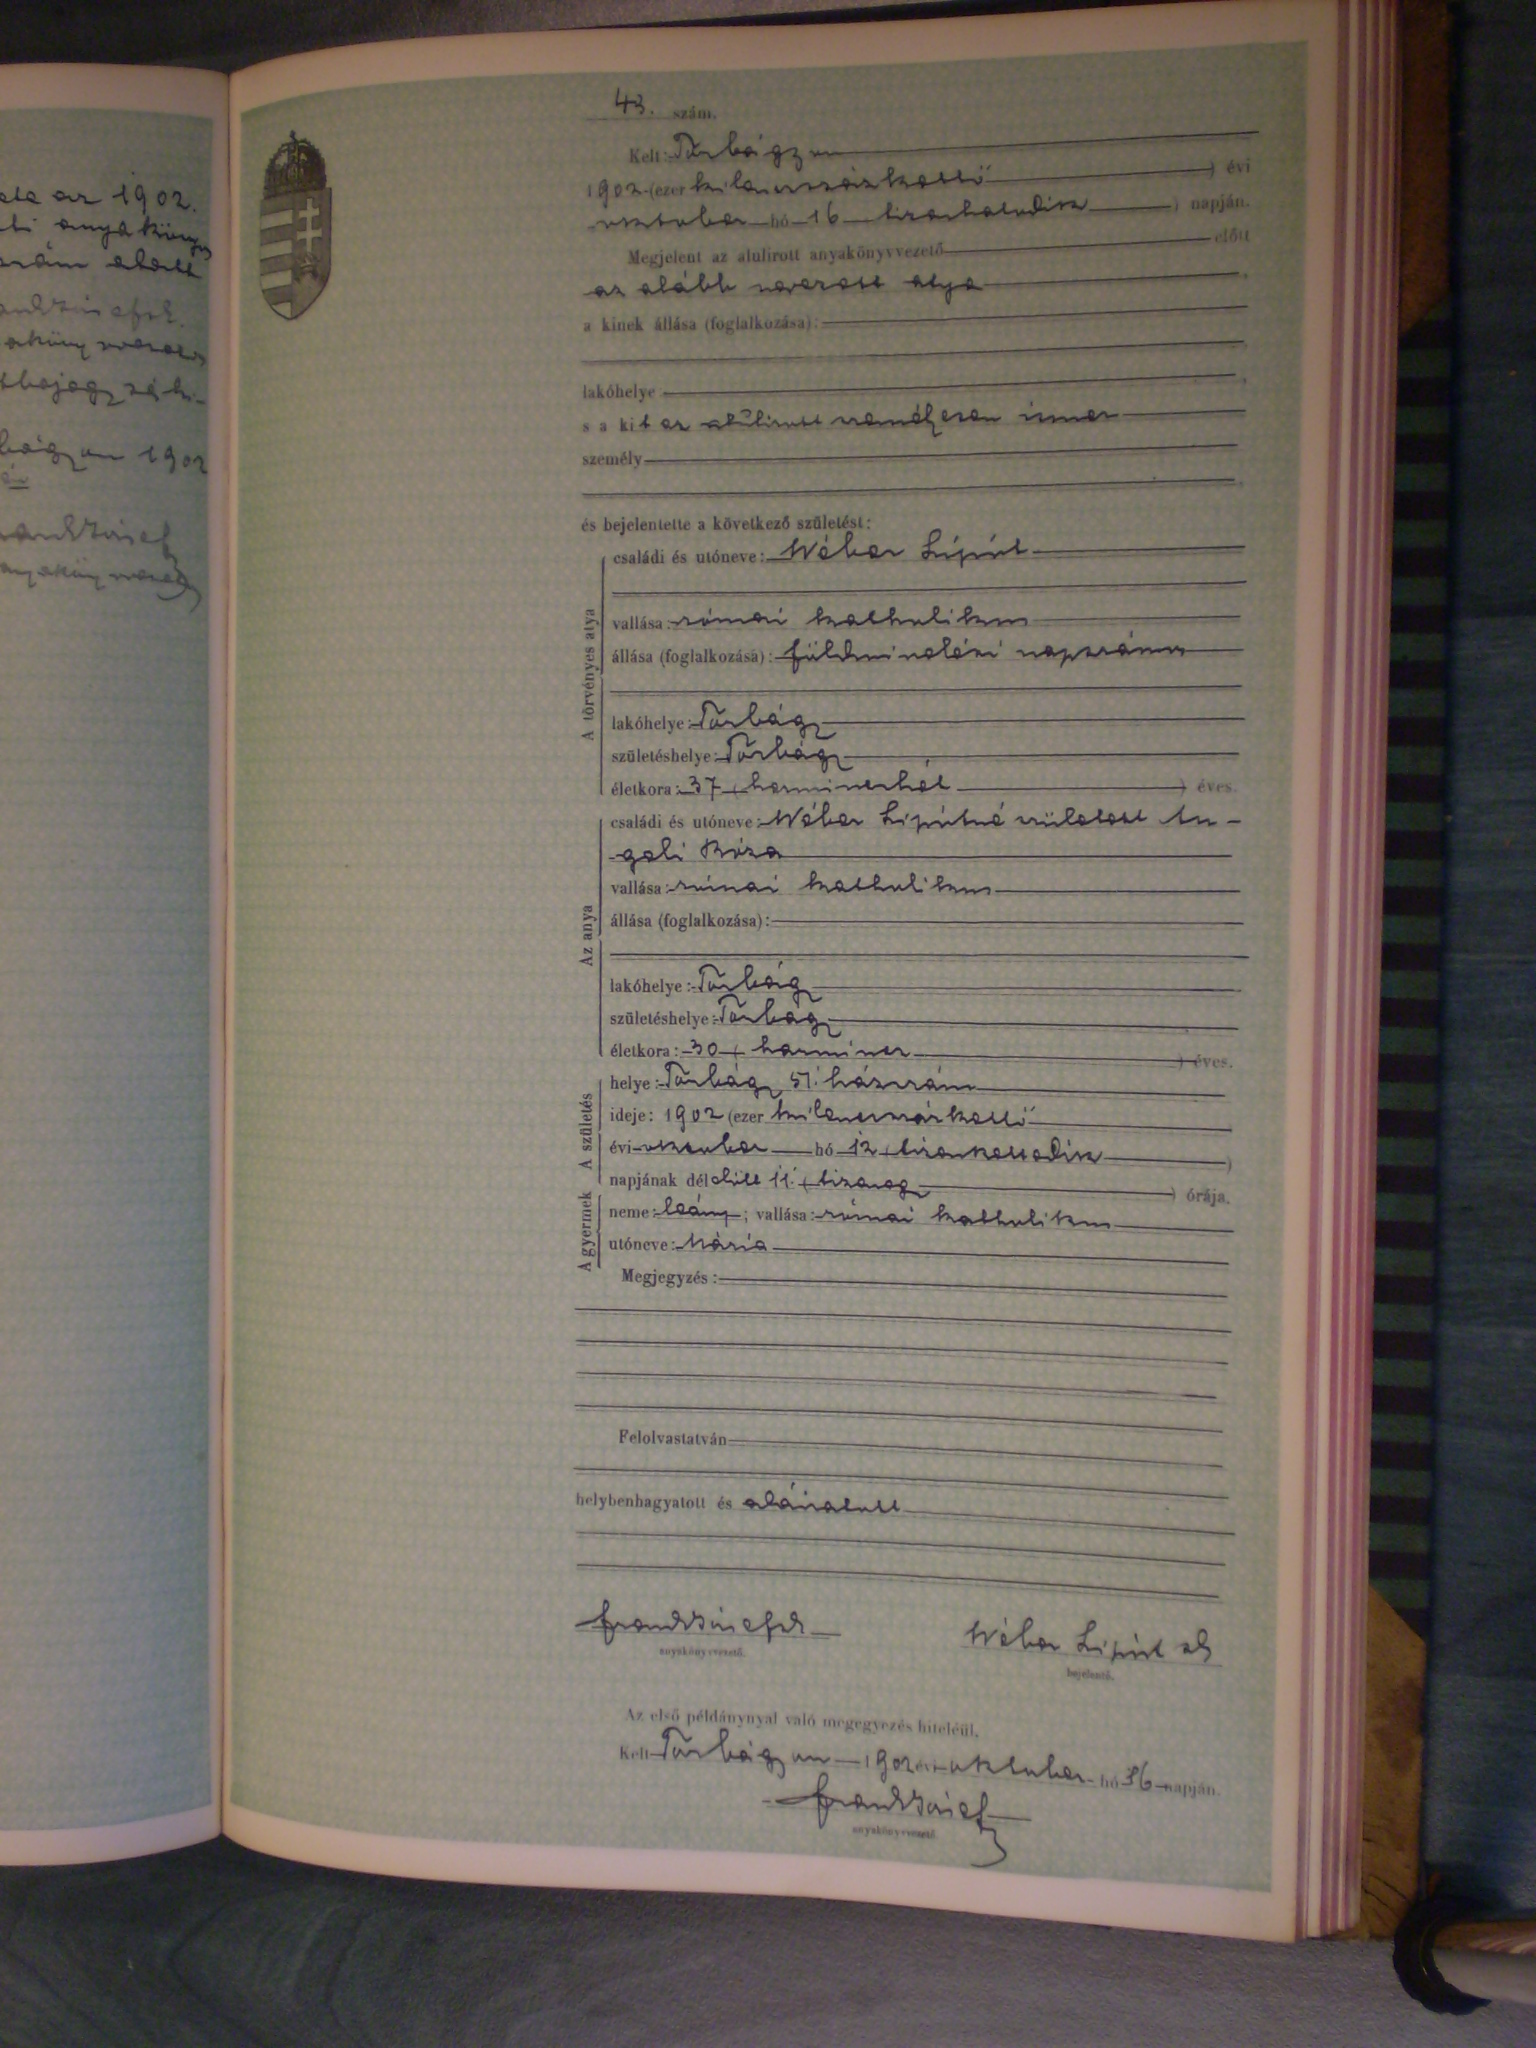 ete az 1902.
szám alatt
43. szám.
Kelt: Törbágyon
1902 (ezer kilenczszázkettő ) évi
oktober hó 16 (tizenhatodik ) napján.
Megjelent az alulirott anyakönyvvezető előtt
az alább nevezett atya
a kinek állása (foglalkozása):
lakóhelye
s a kit az alulirott személyesen ismer
személy
és bejelentette a következő születést:
A törvényes atya
családi és utóneve: Wéber Lipót
vallása: római katholikus
állása (foglalkozása): földmivelési napszámos
lakóhelye: Törbágy
születéshelye: Törbágy
életkora: 37 (harminczhét ) éves.
Az anya
családi és utóneve: Wéber Lipótné született An-
geli Róza
vallása: római katholikus
állása (foglalkozása):
lakóhelye: Törbágy
születéshelye: Törbágy
életkora: 30 (harmincz ) éves.
A születés
helye: Törbágy 51. házszám
ideje: 1902 (ezer kilenczszázkettő
évi oktober hó 12 (tizenkettedik )
napjának délelőtt 11. (tizenegy ) órája.
A gyermek
neme: leány; vallása: római katholikus
utóneve: Mária
Megjegyzés:
Felolvastatván
helybenhagyatott és aláiratott
anyakönyvvezető.
Wéber Lipót
bejelentő.
Az első példánynyal való megegyezés hiteléül.
Kelt Törbágyon 1902 évi oktober hó 16 napján.
anyakönyvvezető